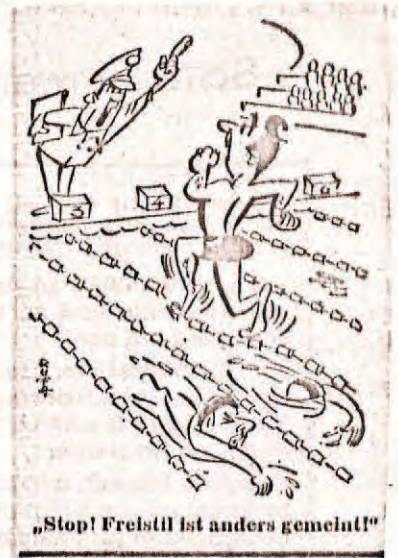 3
4
„Stop! Freistil ist anders gemeint!“